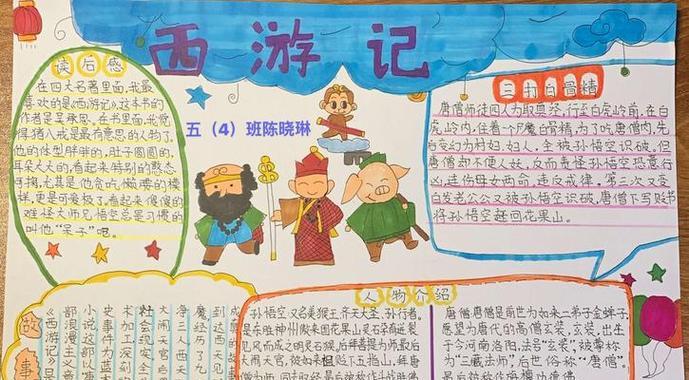 西游记
五（4）班陈晓琳
读后感
在四大名著里面,我最
喜欢的是《西游记》,这本书的
作者是吴承恩。在书里面,我觉
得猪八戒是最有意思的人物了,
他的体型胖胖的,肚子圆圆的,
耳朵大大的,看起来特别的憨态
可掬,尤其是他贪吃、懒惰的模
样,更是可爱极了,看起来傻傻的
难怪大师兄悟空总是习惯的
叫他“呆子”呢。
三打白骨精
唐僧师徒四人为取真经,行至白虎岭前,在白
虎岭内,住着一个尸魔白骨精,为了吃唐僧肉,先
后变幻为村妇,妇人,全被孙悟空识破,但
唐僧却不便人妖,反而责怪孙悟空恐意行
凶,连伤母女两命,违反戒律。第三次又变
白发老公公又被孙悟空识破,唐僧下写贬书
将孙悟空赶回花果山。
故事
《西游记》是
部浪漫主义章
小说这部以唐
史事件为蓝本
术加工深刻的
社会现实
大闹天宫后
海三人西天
魔经历了九
到达西天见
人物介绍
孙悟空又名美猴王、齐天大圣、孙行者,
是东胜神州傲来国花果山灵石孕育迸裂
见风而成之明灵石猴,后拜师习艺,最后
大闹天宫,被如来祖压下五指山,拜唐
唐僧唐僧是前世为如来二弟子金蝉子,
愿望为唐代的高僧玄奘,玄奘,出生
于今河南洛阳,法号“玄奘”,被尊称
为“三藏法师”,后世俗称“唐僧”。